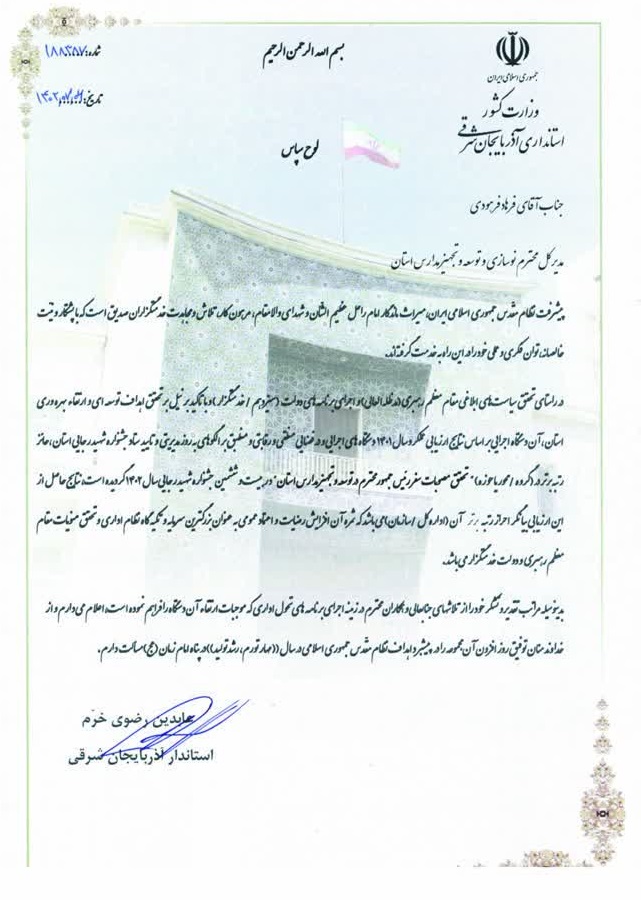 بسم الله الرحمن الرحیم
شماره: ۱۸۸۳۸۷
تاریخ: ۱۴۰۲,۰۷,۰۹
جمهوری اسلامی ایران
وزارت کشور
استانداری آذربایجان شرقی
لوح سپاس
جناب آقای فرهاد فرهودی
مدیر کل محترم نوسازی و توسعه و تجهیز مدارس استان
پیشرفت نظام مقدس جمهوری اسلامی ایران، میراث ماندگار امام راحل عظیم الشان و شهدای والامقام، مرهون کار، تلاش و مجاهدت خدمتگزاران صدیق است که با پشتکار و نیت
خالصانه، توان فکری و عملی خود را در این راه به خدمت گرفته‌اند.
در راستای تحقق سیاست های ابلاغی مقام معظم رهبری (مدظله العالی) و اجرای برنامه های دولت (سیزدهم / خدمتگزار) و با تاکید بر نیل بر تحقق اهداف توسعه ای و ارتقاء بهره وری
استان، آن دستگاه اجرایی بر اساس نتایج ارزیابی عملکرد سال ۱۴۰۱ دستگاه های اجرایی و در فضایی منطقی و رقابتی و منطبق بر الگوهای به روز مدیریتی و تایید ستاد جشنواره شهید رجایی استان، حائز
رتبه برتر در (گروه / محور یا حوزه) " تحقق مصوبات سفر رئیس جمهور محترم در توسعه و تجهیز مدارس استان" در بیست و ششمین جشنواره شهید رجایی سال ۱۴۰۲ گردیده است، نتایج حاصل از
این ارزیابی بیانگر احراز رتبه برتر آن (اداره کل / سازمان) می باشد که ثمره آن افزایش رضایت و اعتماد عمومی به عنوان بزرگترین سرمایه و تکیه گاه نظام اداری و تحقق منویات مقام
معظم رهبری و دولت خدمتگزار می باشد.
بدینوسیله مراتب تقدیر و تشکر خود را از تلاشهای جنابعالی و همکاران محترم در زمینه اجرای برنامه های تحول اداری که موجبات ارتقاء آن دستگاه را فراهم نموده است، اعلام می دارم و از
خداوند منان توفیق روز افزون آن مجموعه را در پیشبرد اهداف نظام مقدس جمهوری اسلامی در سال ((مهار تورم، رشد تولید)) در پناه امام زمان (عج) مسالت دارم.
عابدین رضوی خرّم
استاندار آذربایجان شرقی